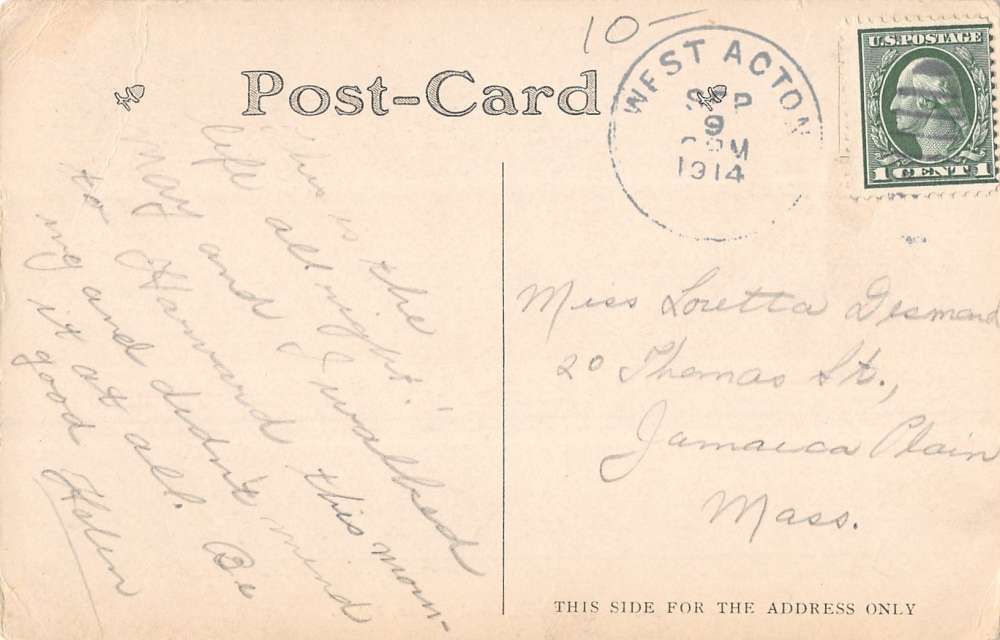 10-
Post-Card
WEST ACTON
SEP
9
PM
1914
U.S. POSTAGE
1 CENT 1
This is the
life all right!
May and I walked
to Harvard this morn-
ing and didn't mind
it at all. Be
good Helen
Miss Loretta Desmond
20 Thomas St.,
Jamaica Plain
Mass.
THIS SIDE FOR THE ADDRESS ONLY